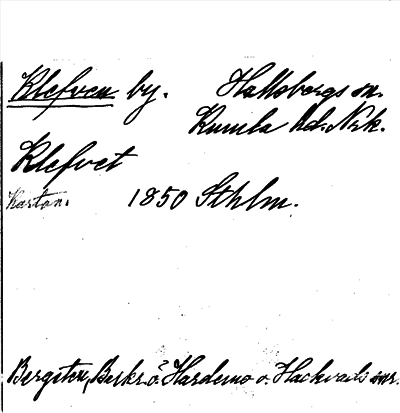 Klefven by. Hallsbergs sn.
Kumla hd. Nrk.
Klefvet
Karton. 1850 Sthlm.
Bergsten, Beskr. ö. Hardemo o. Hackvads snr.